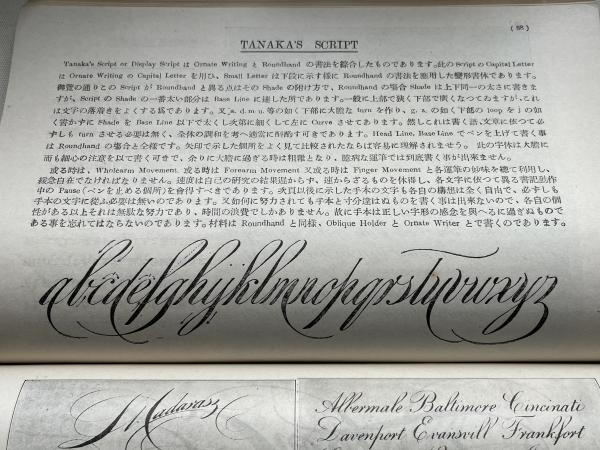 ( 88 )
TANAKA'S SCRIPT
Tanaka's Script or Display Script は Ornate Writing と Roundhand の書法を綜合したものであります。此の Script の Capital Letter
は Ornate Writing の Capital Letter を用ひ、Small Letter は下段に示す様に Roundhand の書法を應用した變形書体であります。
御覽の通りこの Script が Roundhand と異る点はその Shade の附け方で、Roundhand の場合 Shade は上下同一の太さに書きま
すが、Script の Shade の一番太い部分は Base Line に達した所であります。一般に上部で狹く下部で廣くなつてゐますが、これ
は文字の落着きをよくする爲であります。又 a. d. m. u. 等の如く下部に大膽な turn を作り、g. s. の如く下部の loop を j の如
く書かずに Shade を Base Line 以下で太くし次第に細くして左に Curve させてあります。然しこれは書く語、文章に依つて必
ずしも turn させる必要は無く、全体の調和を考へ適當に斟酌すべきであります。Head Line, Base Line でペンを上げて書く事
は Roundhand の場合と全樣です。矢印で示した個所をよく見て比較されたならば容易に理解されませう。此の字体は大膽に
而も細心の注意を以て書く可きで、余りに大膽に過ぎる時は粗雜となり、臆病な運筆では到底書く事が出來ません。
或る時は、Wholearm Movement. 或る時は Forearm Movement 又或る時は Finger Movement と各運筆の妙味を總て利用し、
緩急自在でなければなりません。速度は自己の研究の結果温からず、速からざるものを休得し、各文字に依つて異る書記動作
中の Pause (ペンを止める個所) を會得すべきであります。次頁以後に示した手本の文字も各自の構想は全く自由で、必ずしも
手本の文字に從ふ必要は無いのであります。又如何に努力されても手本と寸分違はぬものを書く事は出來ないので、各自の個
性がある以上それは無駄な努力であり、時間の浪費でしかありません。故に手本は正しい字形の感念を與へるに過ぎぬもので
ある事を忘れてはならないのであります。材料は Roundhand と同樣、Oblique Holder と Ornate Writer とで書くのであります。
abcdefghijklmnopqrstuvwxyz
Madarasz
Albermale Baltimore Cincinati
Davenport Evansvill Frankfort